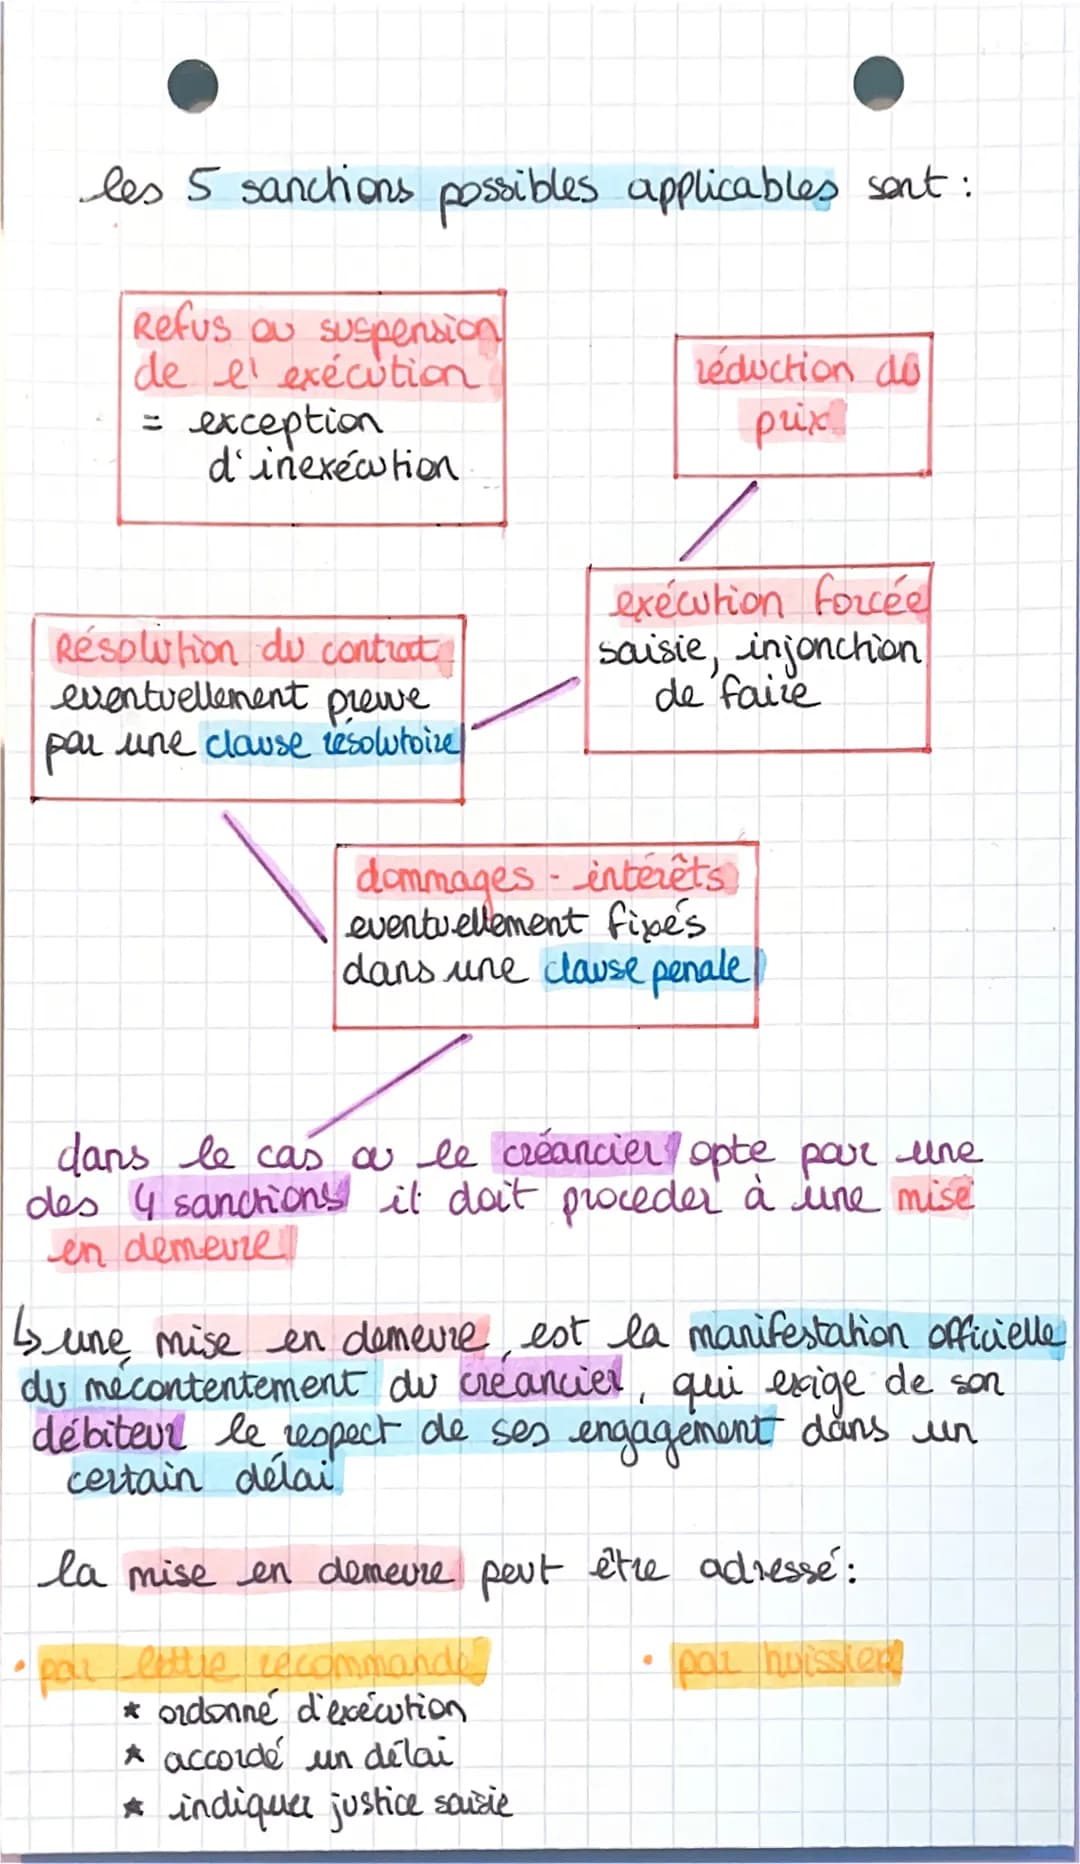 les 5 sanctions possibles applicables sont :
Refus ou suspension
de l'exécution
= exception
d'inexécution
réduction du
prix
exécution forcée
saisie, injonction
de faire
Résolution du contrat
eventuellement preuve
par une clause résolutoire
dommages - intérêts
eventuellement fixés
dans une clause penale
dans le cas ou le créancier opte par une
des 4 sanctions il doit proceder à une mise
en demeure
↳ une mise en demeure, est la manifestation officielle
du mécontentement du créancier, qui exige de son
débiteur le respect de ses engagement dans un
certain délai
la mise en demeure peut être adressé :
• par lettre recommandé
* ordonné d'exécution
* accordé un délai
* indiquer justice saisie
• par huissier